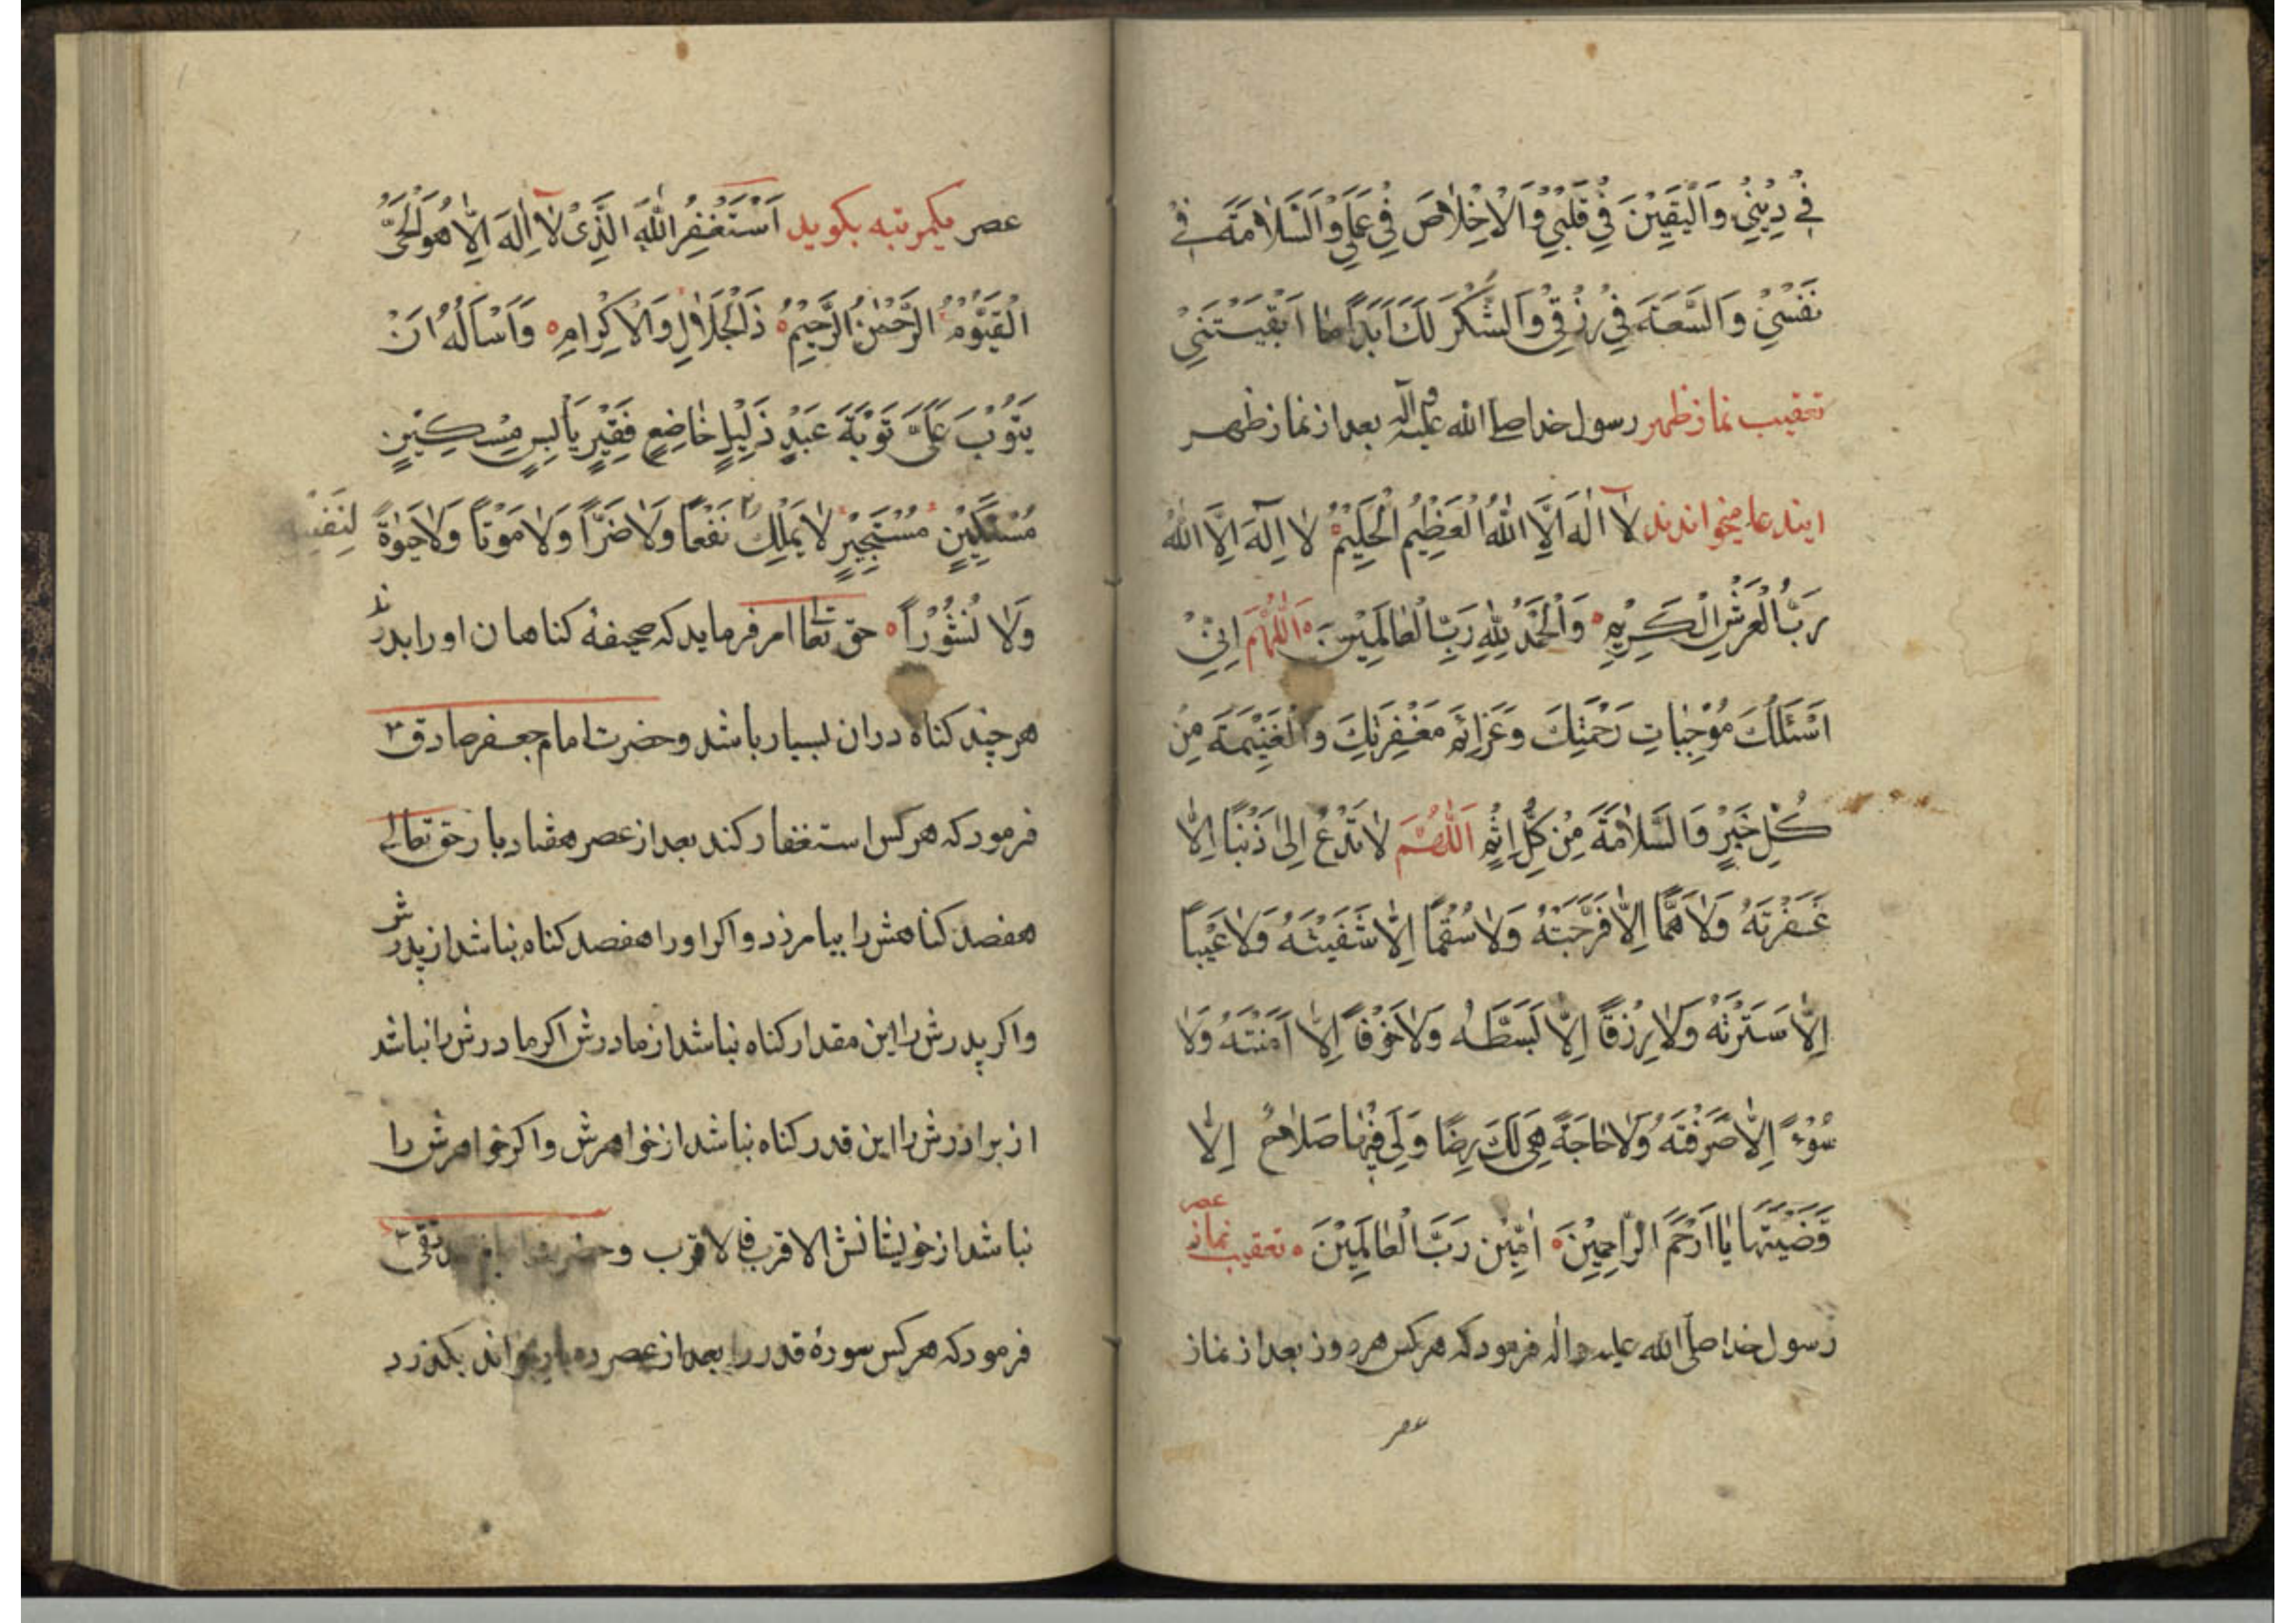 فِي دِيْنِيْ وَالْيَقِيْنَ فِيْ قَلْبِيْ وَالْاِخْلٰاصَ فِيْ عَمَلِيْ وَالسَّلٰامَةَ فِيْ
نَفْسِيْ وَالسَّعَةَ فِيْ رِزْقِيْ وَالشُّكْرَ لَكَ اَبَدًا مٰا اَبْقَيْتَنِيْ
تعقيب نماز ظهر رسول خدا صلي الله عليه وآله بعد از نماز ظهر
ايندعا ميخواندند لٰا اِلٰهَ اِلَّا اللّٰهُ الْعَظِيْمُ الْحَلِيْمُ لٰا اِلٰهَ اِلَّا اللّٰهُ
رَبُّ الْعَرْشِ الْكَرِيْمِ وَالْحَمْدُ لِلّٰهِ رَبِّ الْعٰالَمِيْنَ اَللّٰهُمَّ اِنِّيْ
اَسْئَلُكَ مُوْجِبٰاتِ رَحْمَتِكَ وَعَزٰائِمَ مَغْفِرَتِكَ وَالْغَنِيْمَةَ مِنْ
كُلِّ خَيْرٍ وَالسَّلٰامَةَ مِنْ كُلِّ اِثْمٍ اَللّٰهُمَّ لٰا تَدَعْ لِيْ ذَنْبًا اِلّٰا
غَفَرْتَهُ وَلٰا هَمًّا اِلّٰا فَرَّجْتَهُ وَلٰا سُقْمًا اِلّٰا شَفَيْتَهُ وَلٰا عَيْبًا
اِلّٰا سَتَرْتَهُ وَلٰا رِزْقًا اِلّٰا بَسَطْتَهُ وَلٰا خَوْفًا اِلّٰا اٰمَنْتَهُ وَلٰا
سُوْءً اِلّٰا صَرَفْتَهُ وَلٰا حٰاجَةً هِيَ لَكَ رِضًا وَلِيَ فِيْهٰا صَلٰاحٌ اِلّٰا
قَضَيْتَهٰا يٰا اَرْحَمَ الرّٰاحِمِيْنَ اٰمِيْنَ رَبَّ الْعٰالَمِيْنَ تعقيب نماز عصر
رسول خدا صلّى الله عليه واله فرمودكه هركس هر روز بعد از نماز
عصر
عصر يكمرتبه بكويد اَسْتَغْفِرُ اللّٰهَ الَّذِىْ لٰا اِلٰهَ اِلّٰا هُوَ الْحَيُّ
الْقَيُّوْمُ الرَّحْمٰنُ الرَّحِيْمُ ذَاالْجَلٰالِ وَالْاِكْرٰامِ وَاَسْاَلُهُ اَنْ
يَتُوْبَ عَلَىَّ تَوْبَةَ عَبْدٍ ذَلِيْلٍ خٰاضِعٍ فَقِيْرٍ بٰائِسٍ مِسْكِيْنٍ
مُسْتَكِيْنٍ مُسْتَجِيْرٍ لٰا يَمْلِكُ نَفْعًا وَلٰا ضَرًّا وَلٰا مَوْتًا وَلٰا حَيٰوةً
لِنَفْسِهِ
وَلٰا نُشُوْرًا حق تعا امر فرمايد كه صحيفهٔ كناهان او را بدرند
هرچند كناه دران بسيار باشد وحضرت امام جعفر صادق ع
فرمود كه هركس استغفار كند بعد از عصر هفتاد بار حق تعالى
هفصد كناهش را بيامرزد واكر او را هفصد كناه نباشد از پدرش
واكر پدرش را اين مقدار كناه نباشد از مادرش اكر مادرش را نباشد
از برادرش را اين قدر كناه نباشد از خواهرش واكر خواهرش را
نباشد از خويشانش الاقرب فالاقرب وحضرت تقى
فرمود كه هركس سورهٔ قدر را بعد از عصر ده بار بخواند بكذرد